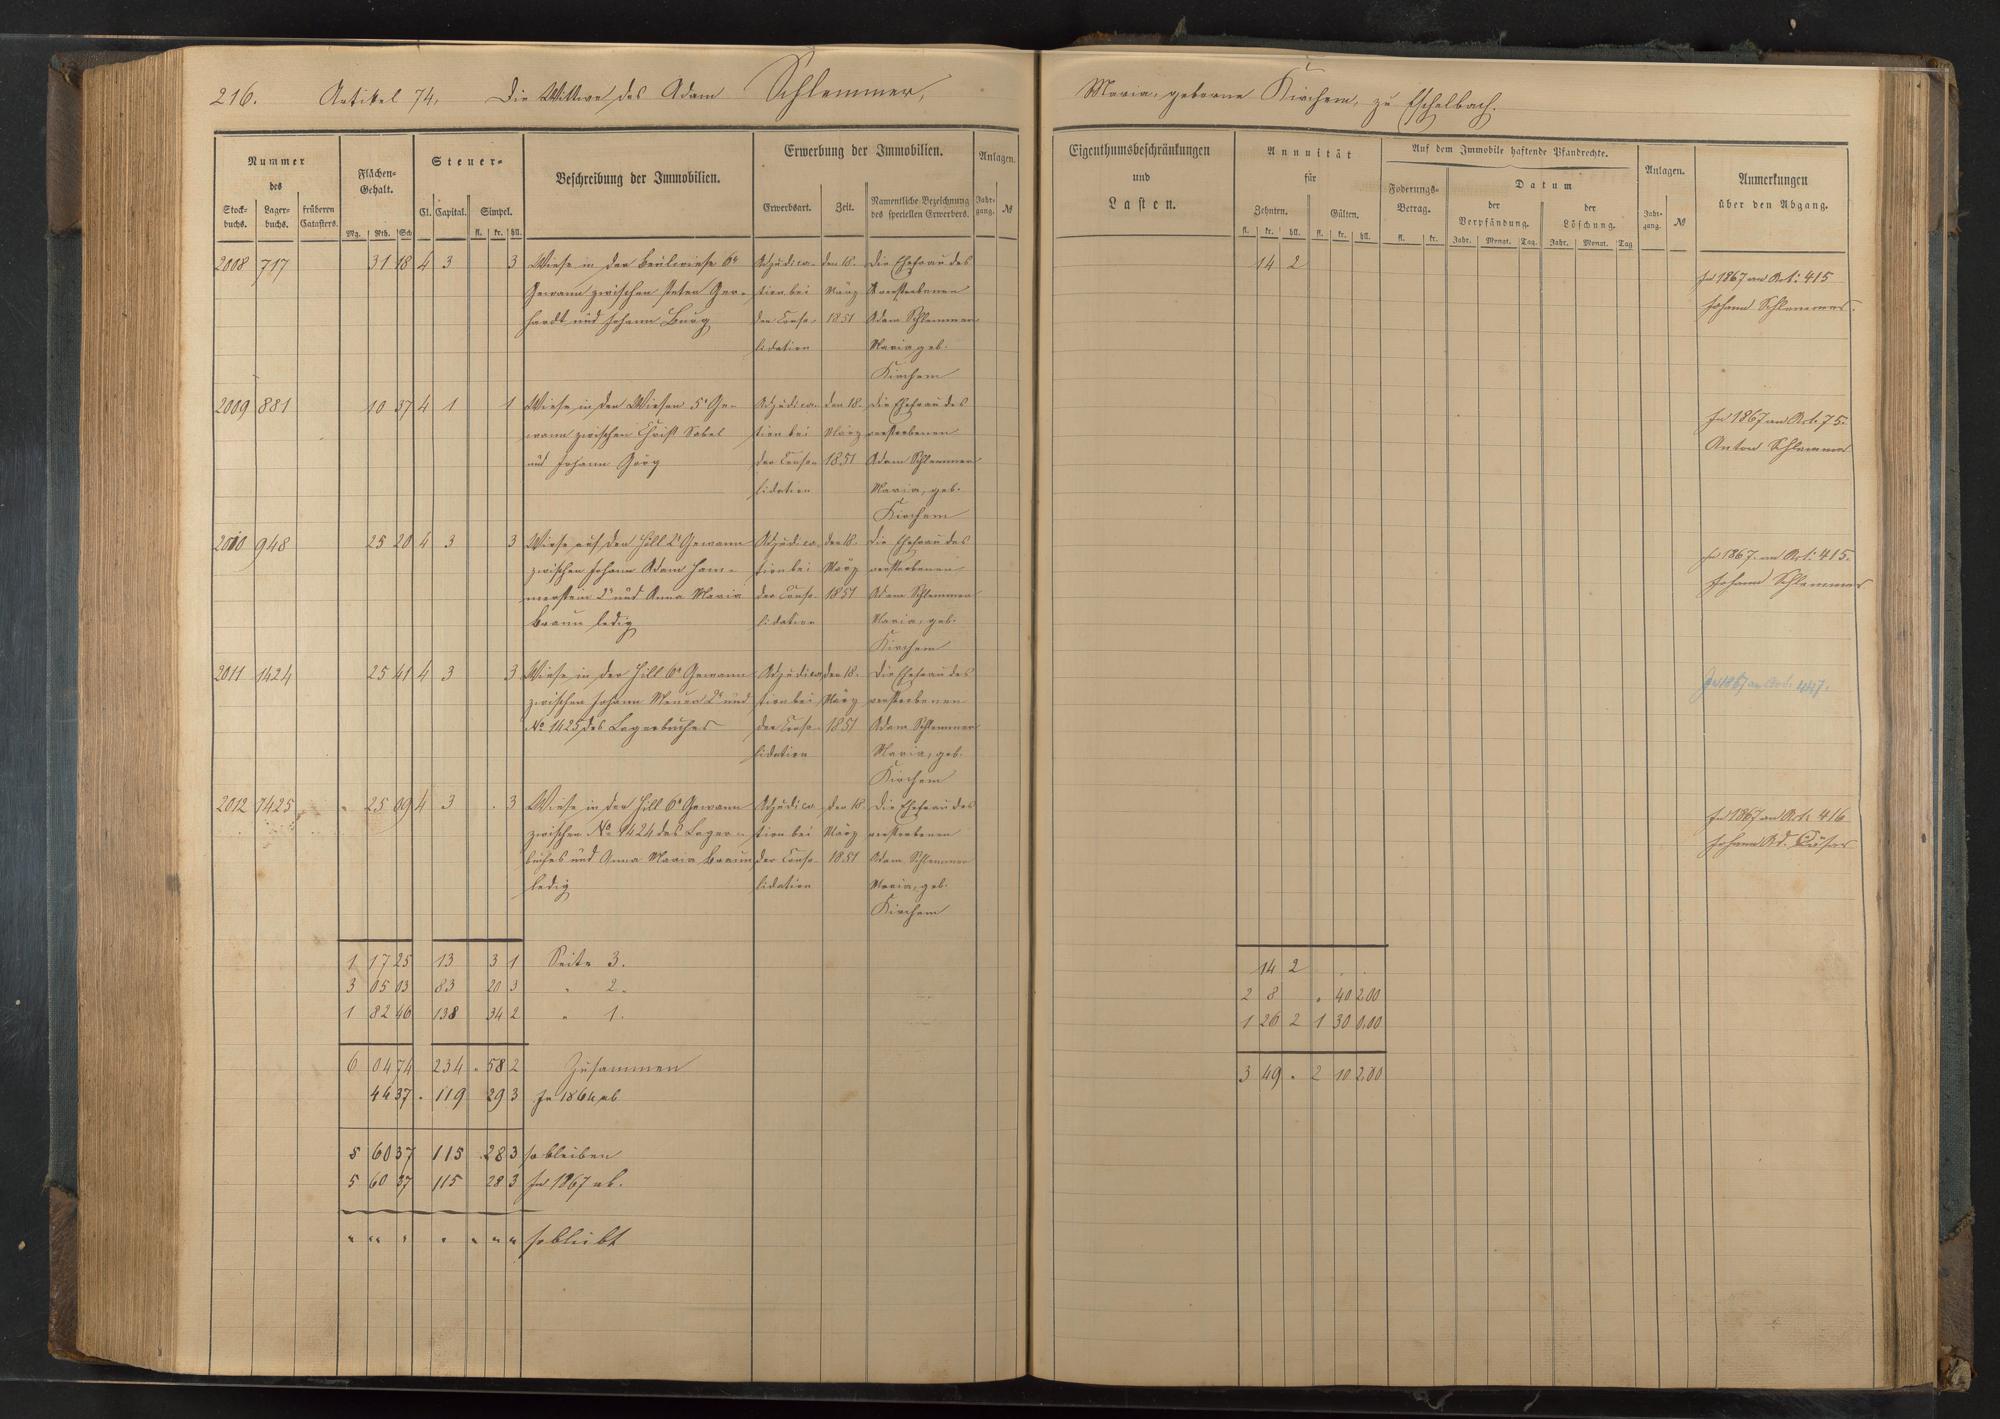 216. Artikel 74, Die Wittwe des Adam Schlemmer,
Maria, geborne Kirchem, zu Eschelbach.
Nummer des
Stock-buchs. Lager-buchs. früheren Catasters.
Flächen-Gehalt.
Mg. Rth. Sch
Steuer-
Cl. Capital. Simpel.
fl. kr. hll.
Beschreibung der Immobilien.
Erwerbung der Immobilien.
Erwerbsart. Zeit. Namentliche Bezeichnung des speciellen Erwerbers.
Anlagen.
Jahr-gang. №
Eigenthumsbeschränkungen
und
Lasten.
Annuität
für
Zehnten. Gülten.
fl. kr. hll. fl. kr. hll.
Auf dem Immobile haftende Pfandrechte.
Foderungs-Betrag.
fl. kr.
Datum
der Verpfändung. der Löschung.
Jahr. Monat. Tag. Jahr. Monat. Tag
Anlagen.
Jahr-gang. №
Anmerkungen
über den Abgang.
2008 717 31 18 4 3 3 Wiese in der Beulwiese 6r Adjudica- den 18. Die Ehefrau des 14 2 In 1867 an Art: 415
Gewann zwischen Peter Ger- tion bei März verstorbenen Johann Schlemmer.
hardt und Johann Burg der Conso- 1851 Adam Schlemmer
lidation Maria, geb.
Kirchem
2009 881 10 37 4 1 1 Wiese in den Wiesen 5r Ge- Adjudica- den 18. Die Ehefrau des In 1867 an Art. 75.
wann zwischen Christ Sabel tion bei März verstorbenen Anton Schlemmer
und Johann Görg der Conso- 1851 Adam Schlemmer
lidation Maria, geb.
Kirchem
2010 948 25 20 4 3 3 Wiese auf der Hill 2r Gewann Adjudica- den 18. Die Ehefrau des In 1867. an Art: 415.
zwischen Johann Adam Ham- tion bei März verstorbenen Johann Schlemmer
merstein 2r und Anna Maria der Conso- 1851 Adam Schlemmer
Braun ledig lidation Maria, geb.
Kirchem
2011 1424 25 41 4 3 3 Wiese in der Hill 6r Gewann Adjudica- den 18. Die Ehefrau des In 1867 an Art. 447.
zwischen Johann Meurer 2r und tion bei März verstorbenen
No 1425 des Lagerbuches der Conso- 1851 Adam Schlemmer
lidation Maria, geb.
Kirchem
2012 1425 25 99 4 3 3 Wiese in der Hill 6r Gewann Adjudica- den 18. Die Ehefrau des In 1867 an Art. 416
zwischen No 1424 des Lager- tion bei März verstorbenen Johann Ad.
buches und Anna Maria Braun der Conso- 1851 Adam Schlemmer
ledig lidation Maria, geb.
Kirchem
1 17 25 13 3 1 Seite 3. 14 2 . .
3 05 03 83 20 3 " 2. 2 8 " 40 2.00
1 82 46 138 34 2 " 1. 1 26 2 1 30 0.00
6 04 74 234 " 58 2 Zusammen 3 49 " 2 10 2.00
44 37 119 29 3 In 1864 ab
5 60 37 115 28 3 so bleiben
5 60 37 115 28 3 In 1867 ab.
" " " " " " " " so bleibt